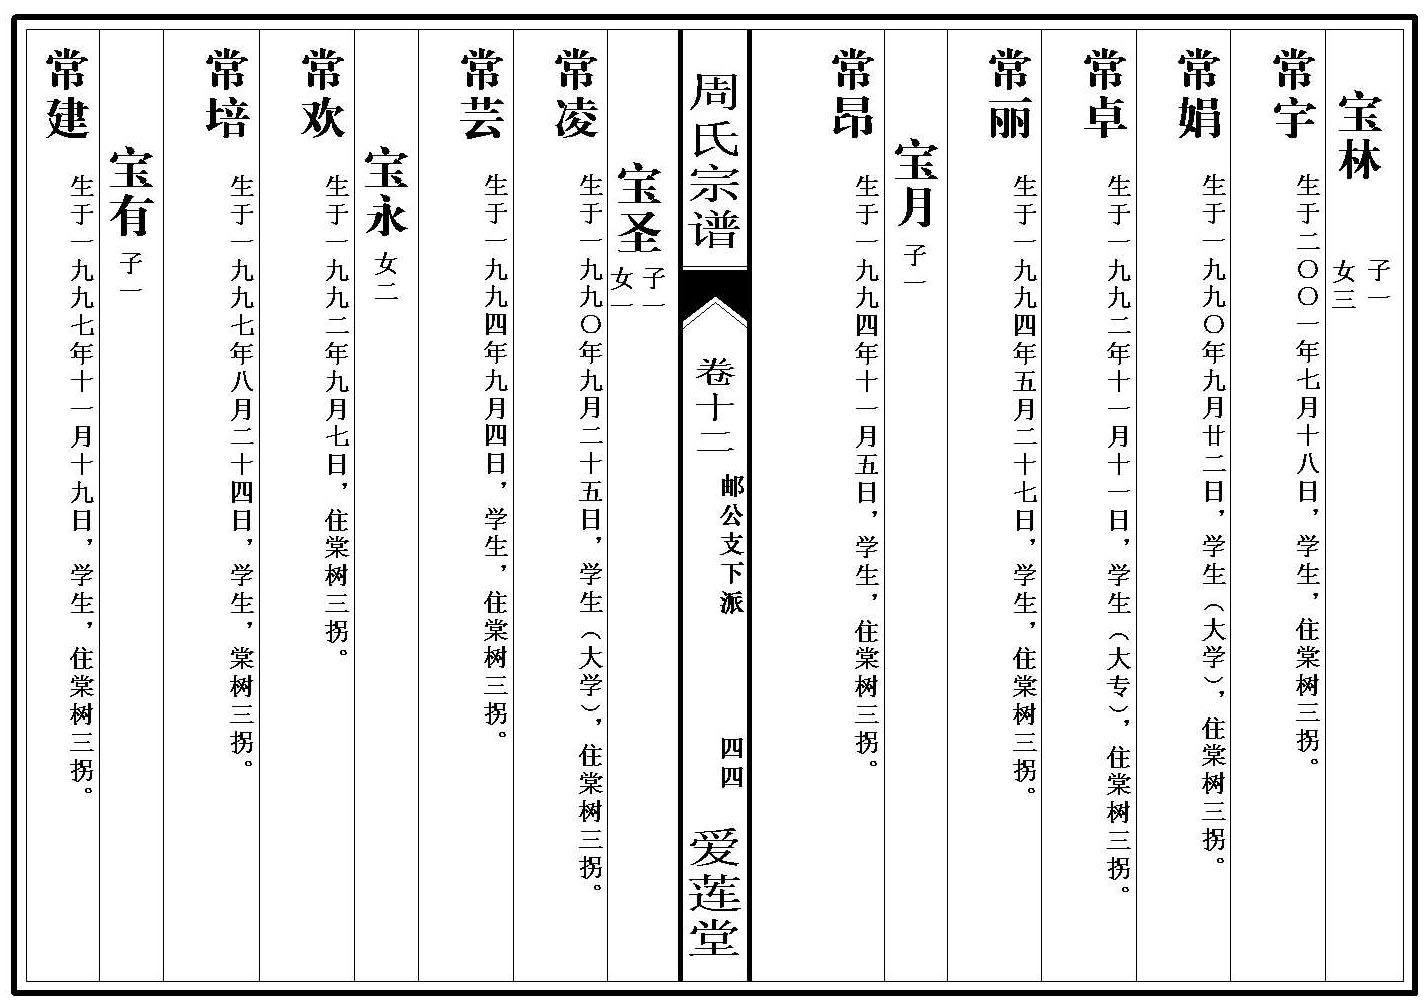 宝林
子一
女三
常宇
生于二〇〇一年七月十八日，学生，住棠树三拐。
常娟
生于一九九〇年九月廿二日，学生（大学），住棠树三拐。
常卓
生于一九九二年十一月十一日，学生（大专），住棠树三拐。
常丽
生于一九九四年五月二十七日，学生，住棠树三拐。
宝月
子一
常昂
生于一九九四年十一月五日，学生，住棠树三拐。
周氏宗谱
卷十二
邮公支下派
四四
爱莲堂
宝圣
子一
女一
常凌
生于一九九〇年九月二十五日，学生（大学），住棠树三拐。
常芸
生于一九九四年九月四日，学生，住棠树三拐。
宝永
女二
常欢
生于一九九二年九月七日，住棠树三拐。
常培
生于一九九七年八月二十四日，学生，棠树三拐。
宝有
子一
常建
生于一九九七年十一月十九日，学生，住棠树三拐。